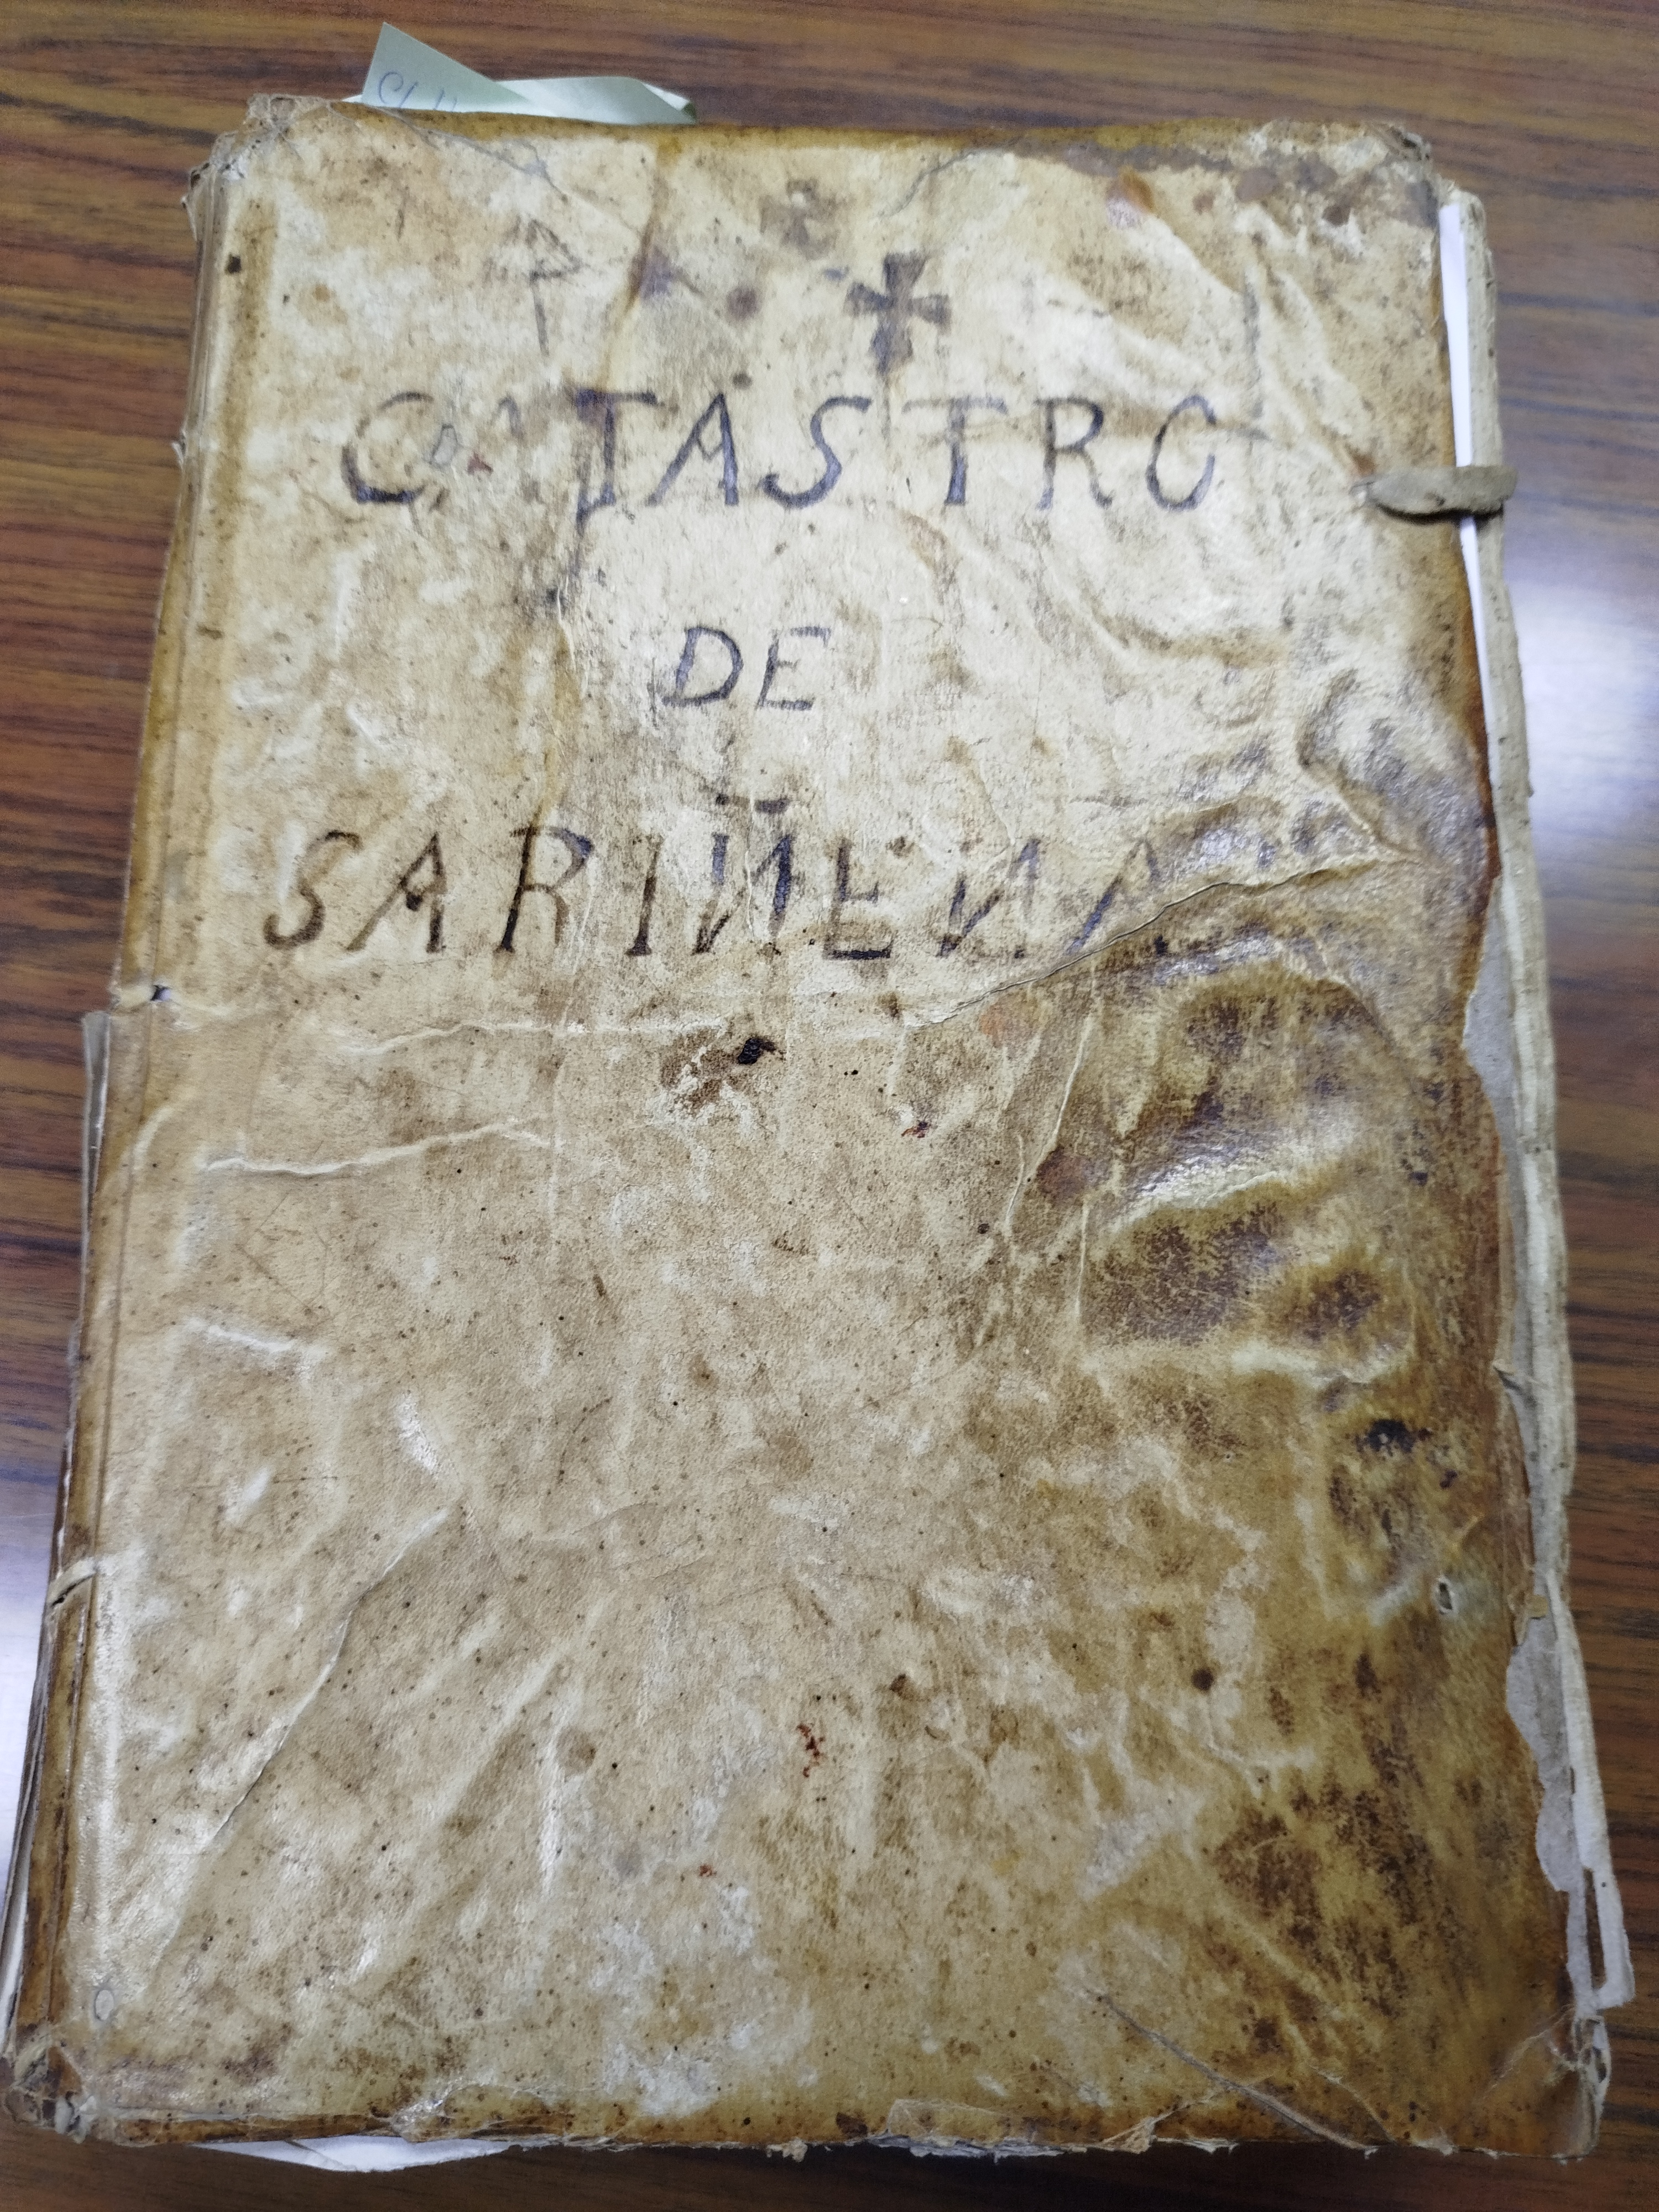 CATASTRO
DE
SARIÑENA